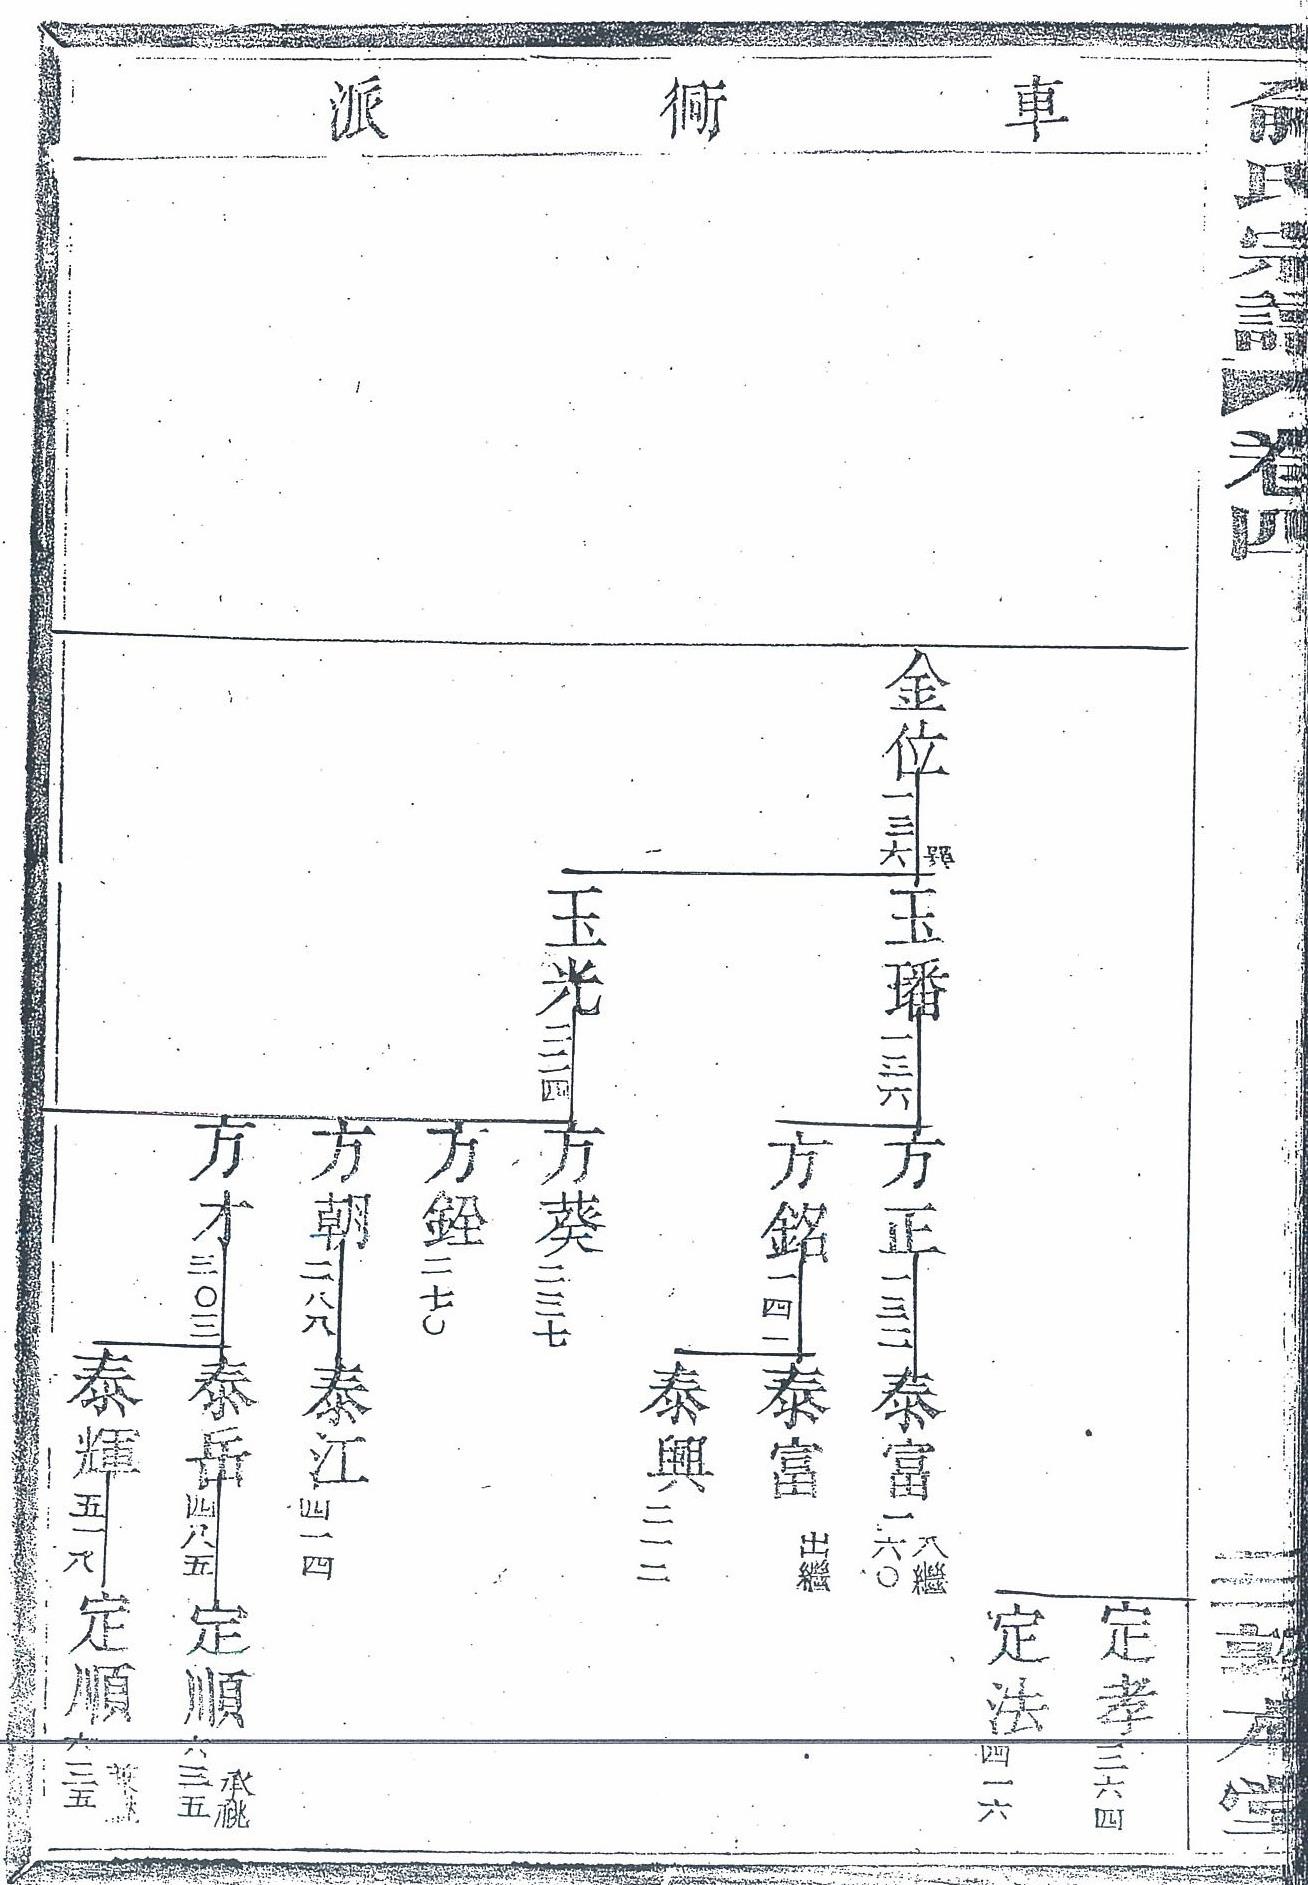 俞氏宗譜
卷四
車衕派
定孝三六四
定法四一六
金位一三六
玉璠一三六
方正一三二
泰富一六〇
入繼
方銘一四一
泰富
出繼
泰興二一二
玉光
方葵二三七
方銓二七〇
方朝二八八
泰江四一四
方才三〇三
泰岳四八五
定順六三五
承祧
泰輝五一八
定順六三五